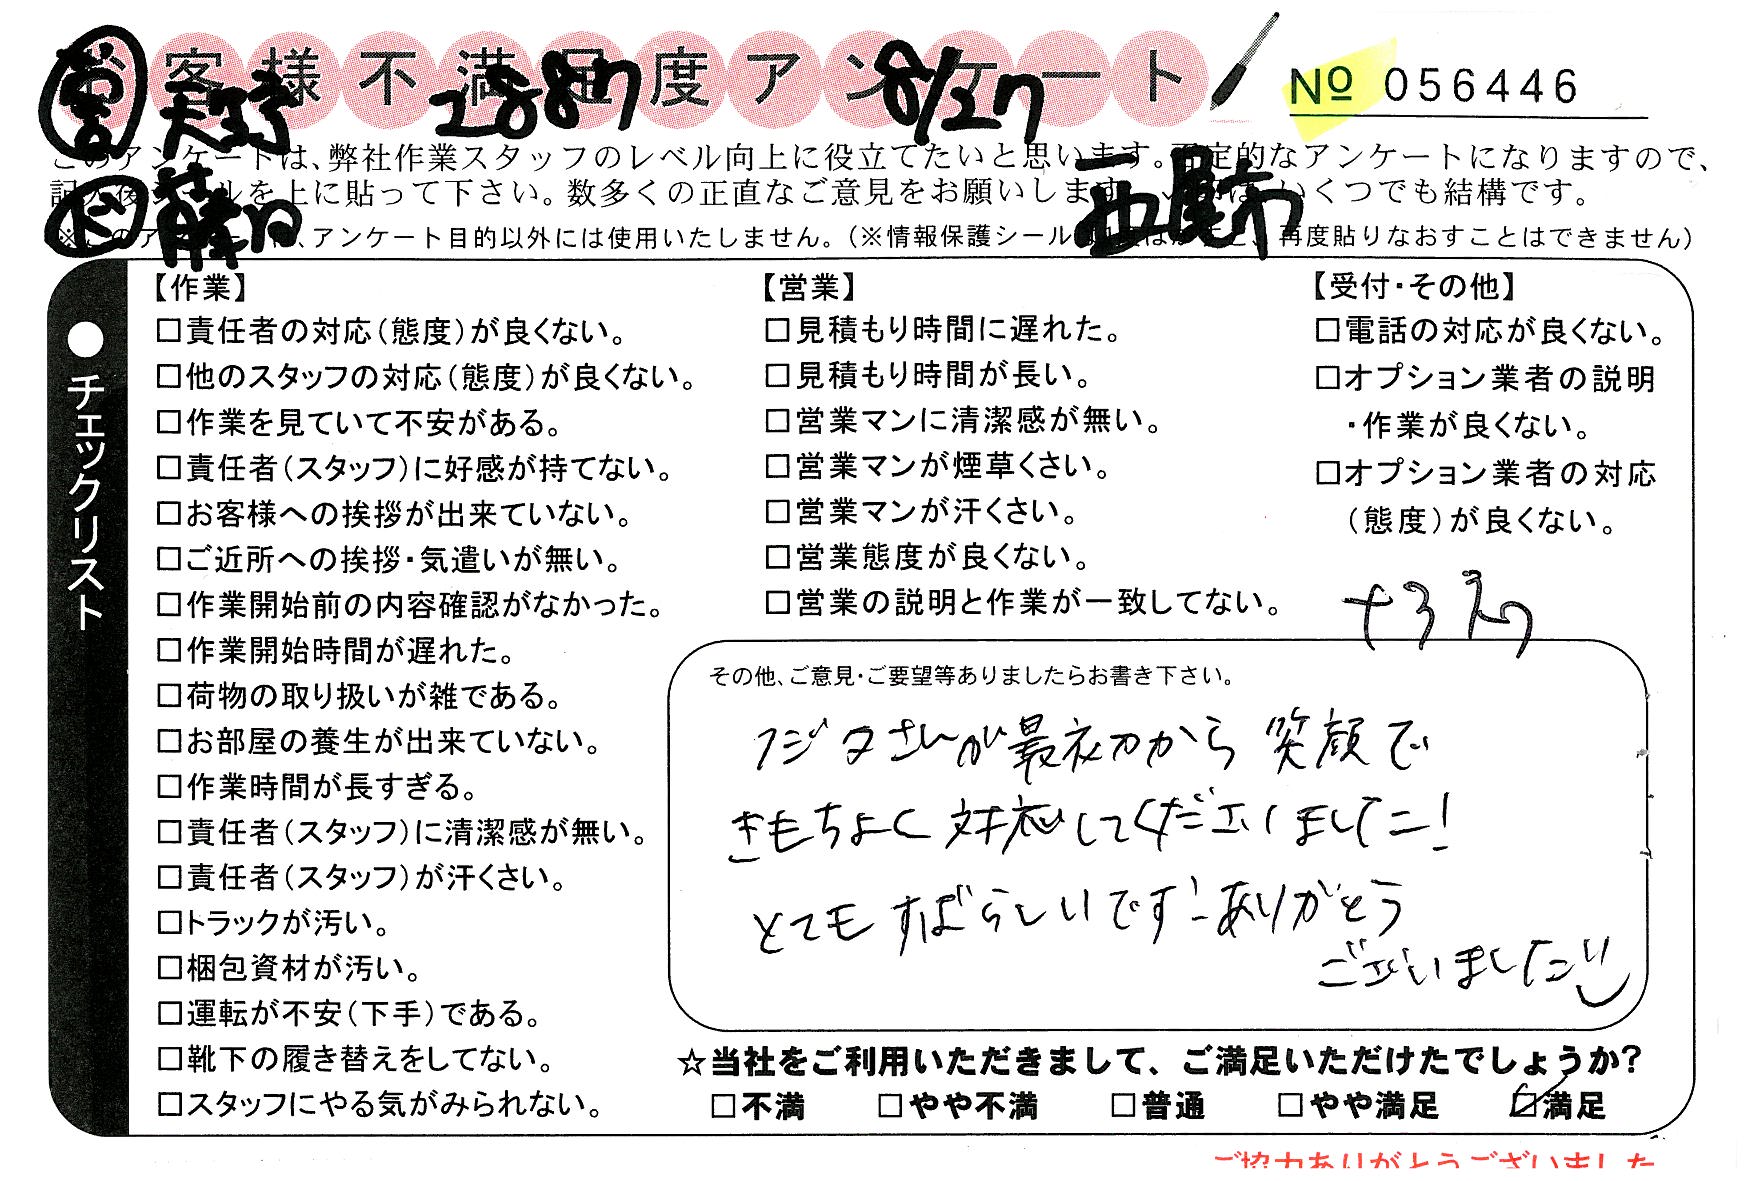 お客様不満足度アンケート
営 天野 2887 8/27
No 056446
このアンケートは、弊社作業スタッフのレベル向上に役立てたいと思います。否定的なアンケートになりますので、
記入後シールを上に貼って下さい。数多くの正直なご意見をお願いします。 いくつでも結構です。
藤田 西尾市
※このアンケートは、アンケート目的以外には使用いたしません。(※情報保護シールは 再度貼りなおすことはできません)
●チェックリスト
【作業】
□責任者の対応(態度)が良くない。
□他のスタッフの対応(態度)が良くない。
□作業を見ていて不安がある。
□責任者(スタッフ)に好感が持てない。
□お客様への挨拶が出来ていない。
□ご近所への挨拶・気遣いが無い。
□作業開始前の内容確認がなかった。
□作業開始時間が遅れた。
□荷物の取り扱いが雑である。
□お部屋の養生が出来ていない。
□作業時間が長すぎる。
□責任者(スタッフ)に清潔感が無い。
□責任者(スタッフ)が汗くさい。
□トラックが汚い。
□梱包資材が汚い。
□運転が不安(下手)である。
□靴下の履き替えをしてない。
□スタッフにやる気がみられない。
【営業】
□見積もり時間に遅れた。
□見積もり時間が長い。
□営業マンに清潔感が無い。
□営業マンが煙草くさい。
□営業マンが汗くさい。
□営業態度が良くない。
□営業の説明と作業が一致してない。
【受付・その他】
□電話の対応が良くない。
□オプション業者の説明
・作業が良くない。
□オプション業者の対応
(態度)が良くない。
その他、ご意見・ご要望等ありましたらお書き下さい。
フジタさんが最初から笑顔で
きもちよく対応してくださいました!
とてもすばらしいです!ありがとう
ございました
☆当社をご利用いただきまして、ご満足いただけたでしょうか?
□不満 □やや不満 □普通 □やや満足 ☑満足
ご協力ありがとうございました